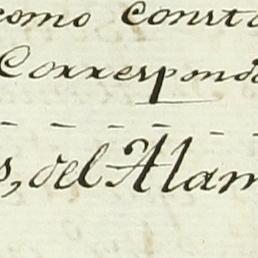 como const
Correspond
s, del Alam